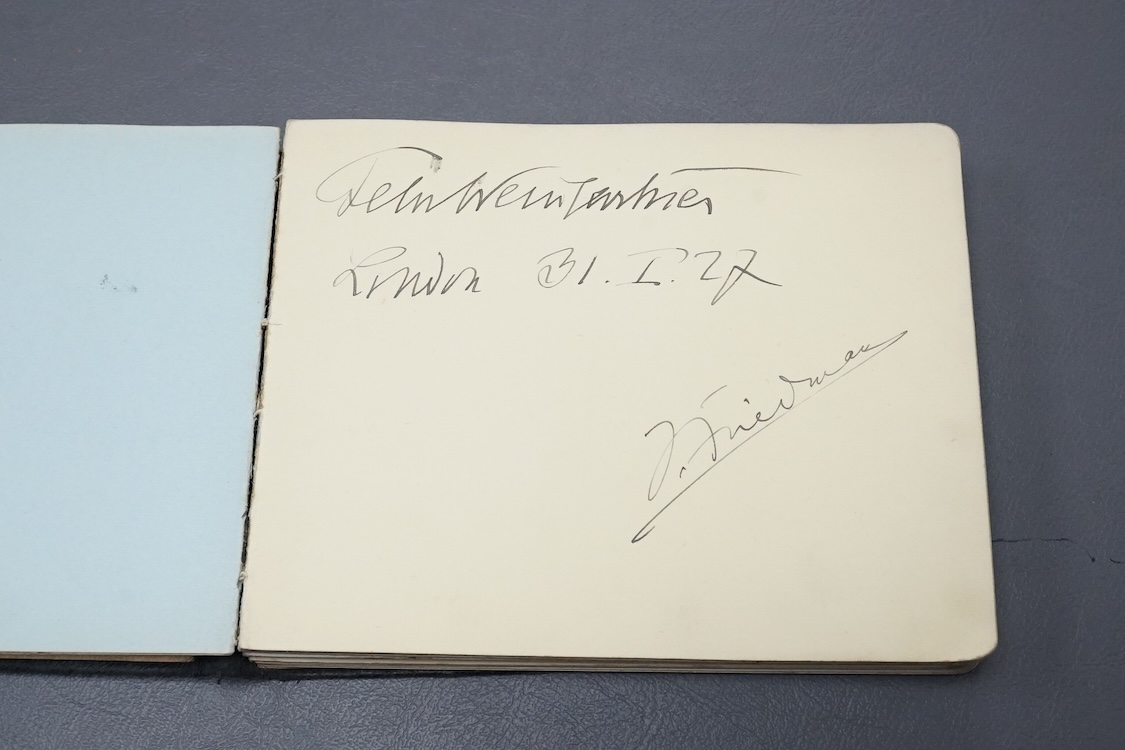 Felix Weingartner
London 31.I.27
I. Friedman